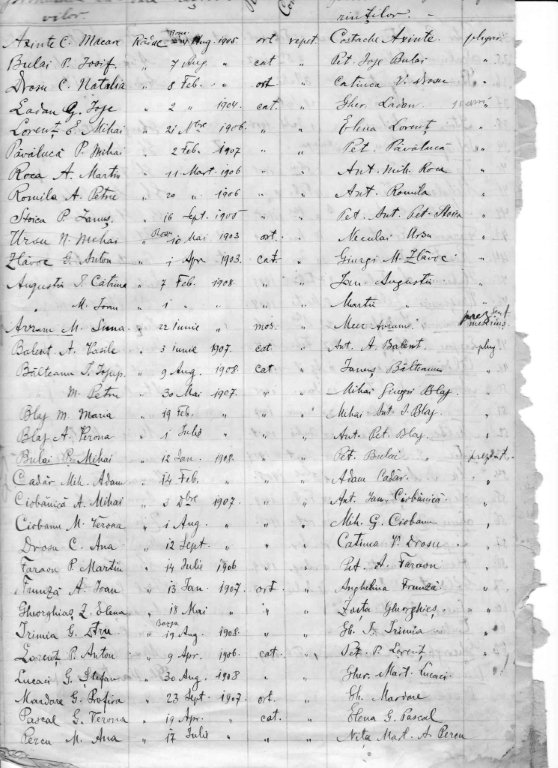 vilor rinților.
Arinte C. Macar Răduc Aug. 1905 ort repet Costache Arinte plugar
Bulai P. Iosif " 7 Aug " cat " Pet. Joje Bulai "
Drosu C. Natalia " 8 Feb. " ort " Catinca V. Drosu "
Ladan G. Joje " 2 " 1904. cat. " Gher. Ladan
Lorenț E. Mihai " 21 Nbre 1906. " " Elena Lorenț "
Păvălucă P. Mihai " 2 Feb. 1907 " " Pet. Păvălucă "
Roca A. Martin " 11 Mart. 1906 " " Ant. Mih. Roca "
Romila A. Petre " 20 " 1906 " " Ant. Romila "
Stoica P. Januș " 16 Sept. 1905 " " Pet. Ant. Pet. Stoica "
Ursu N. Mihai " 10 Mai 1903 ort. " Neculai Ursu "
Zlăvoc G. Anton " 1 Apr. 1903. cat. " Giurgi M. Zlăvoc "
Augustin I. Catrina " 7 Feb. 1908 " " Jan. Augustin "
" M. Ioan " 1 " " " " Martin " "
Avram M. Sima " 22 Iunie " mos. " Avram prezent
Balent A. Vasile " 3 Iunie 1907. cat " Ant. A. Balent plug.
Bălteanu I. " 9 Aug. 1908 cat " Januș Bălteanu "
" M. Petru " 30 Mai 1907. " " Mihai Giurgi Blaj "
Blaj M. Maria " 19 Feb. " " " Mihai Ant. I. Blaj "
Blaj A. Verona " 1 Iulie " " " Ant. Pet. Blaj "
Bulai P. Mihai " 12 Jan. 1908. " " Pet. Bulai prezent.
Cadăr Mih. Adam " 14 Feb. " " " Adam Cadăr. "
Ciobănică A. Mihai " 5 Dbre 1907. " " Ant. Jan. Ciobănică "
Ciobanu M. Verona " 1 Aug. " " " Mih. G. Ciobanu "
Drosu C. Ana " 12 Sept. " " " Catinca V. Drosu "
Faraon P. Martin " 14 Iulie 1906 " " Pet. A. Faraon "
Frunză A. Ioan " 13 Jan. 1907. ort. " Anghelina Frunză "
Gheorghieș Z. Elena " 18 Mai " " " Zoița Gheorghieș "
Irimia G. " 19 Aug. 1908. " " Gh. D. Irimia "
Lorenț P. Anton " 9 Apr. 1906. cat. " Pet. P. Lorenț "
Lucaci G. Stefan " 30 Aug. 1908 " " Gher. Mart. Lucaci "
Mardare G. Profira " 23 Sept. 1907. ort. " Gh. Mardare "
Pascal G. Verona " 19 Apr. " cat. " Elena G. Pascal "
Percu M. Ana " 17 Iulie " " " Niță Mart. A. Percu "